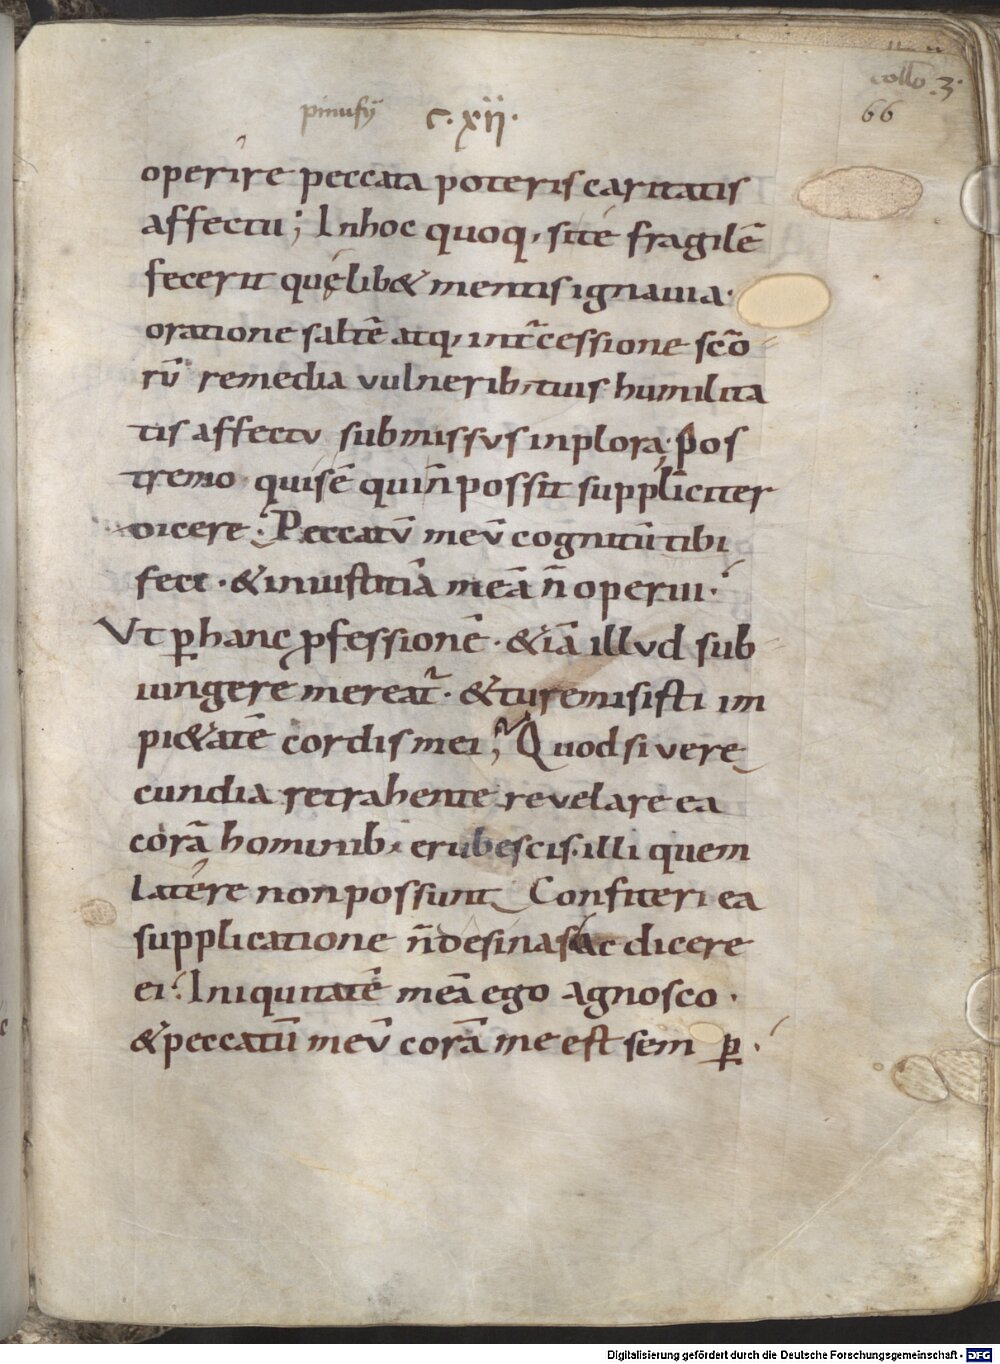 collo 3.
66
pinufÿ c. xii.
operire peccata poteris caritatis
affectu; Inhoc quoq, site fragilē
fecerit quęlib& mentis ignauia.
oratione saltē atq, int̄cessione sc̄o
rū remedia vulnerib, tuis humilita
tis affectu submissus inplora. pos
tremo quis ē qui n̄ possit suppliciter
dicere. Peccatū meū cognitū tibi
feci. & iniustitiā meā n̄ operui.
Ut ꝑ hanc ꝓfessionē. & iā illud sub
iungere mereat̄. & tu remisisti im
pi&atē cordis mei; Quod si vere
cundia retrahente revelare ea
corā hominib, erubescis. illi quem
latere non possunt Confiteri ea
supplicatione n̄ desinas ac dicere
ei. Iniquitatē meā ego agnosco.
& peccatū meū corā me est sem ꝑ.
Digitalisierung gefördert durch die Deutsche Forschungsgemeinschaft - DFG